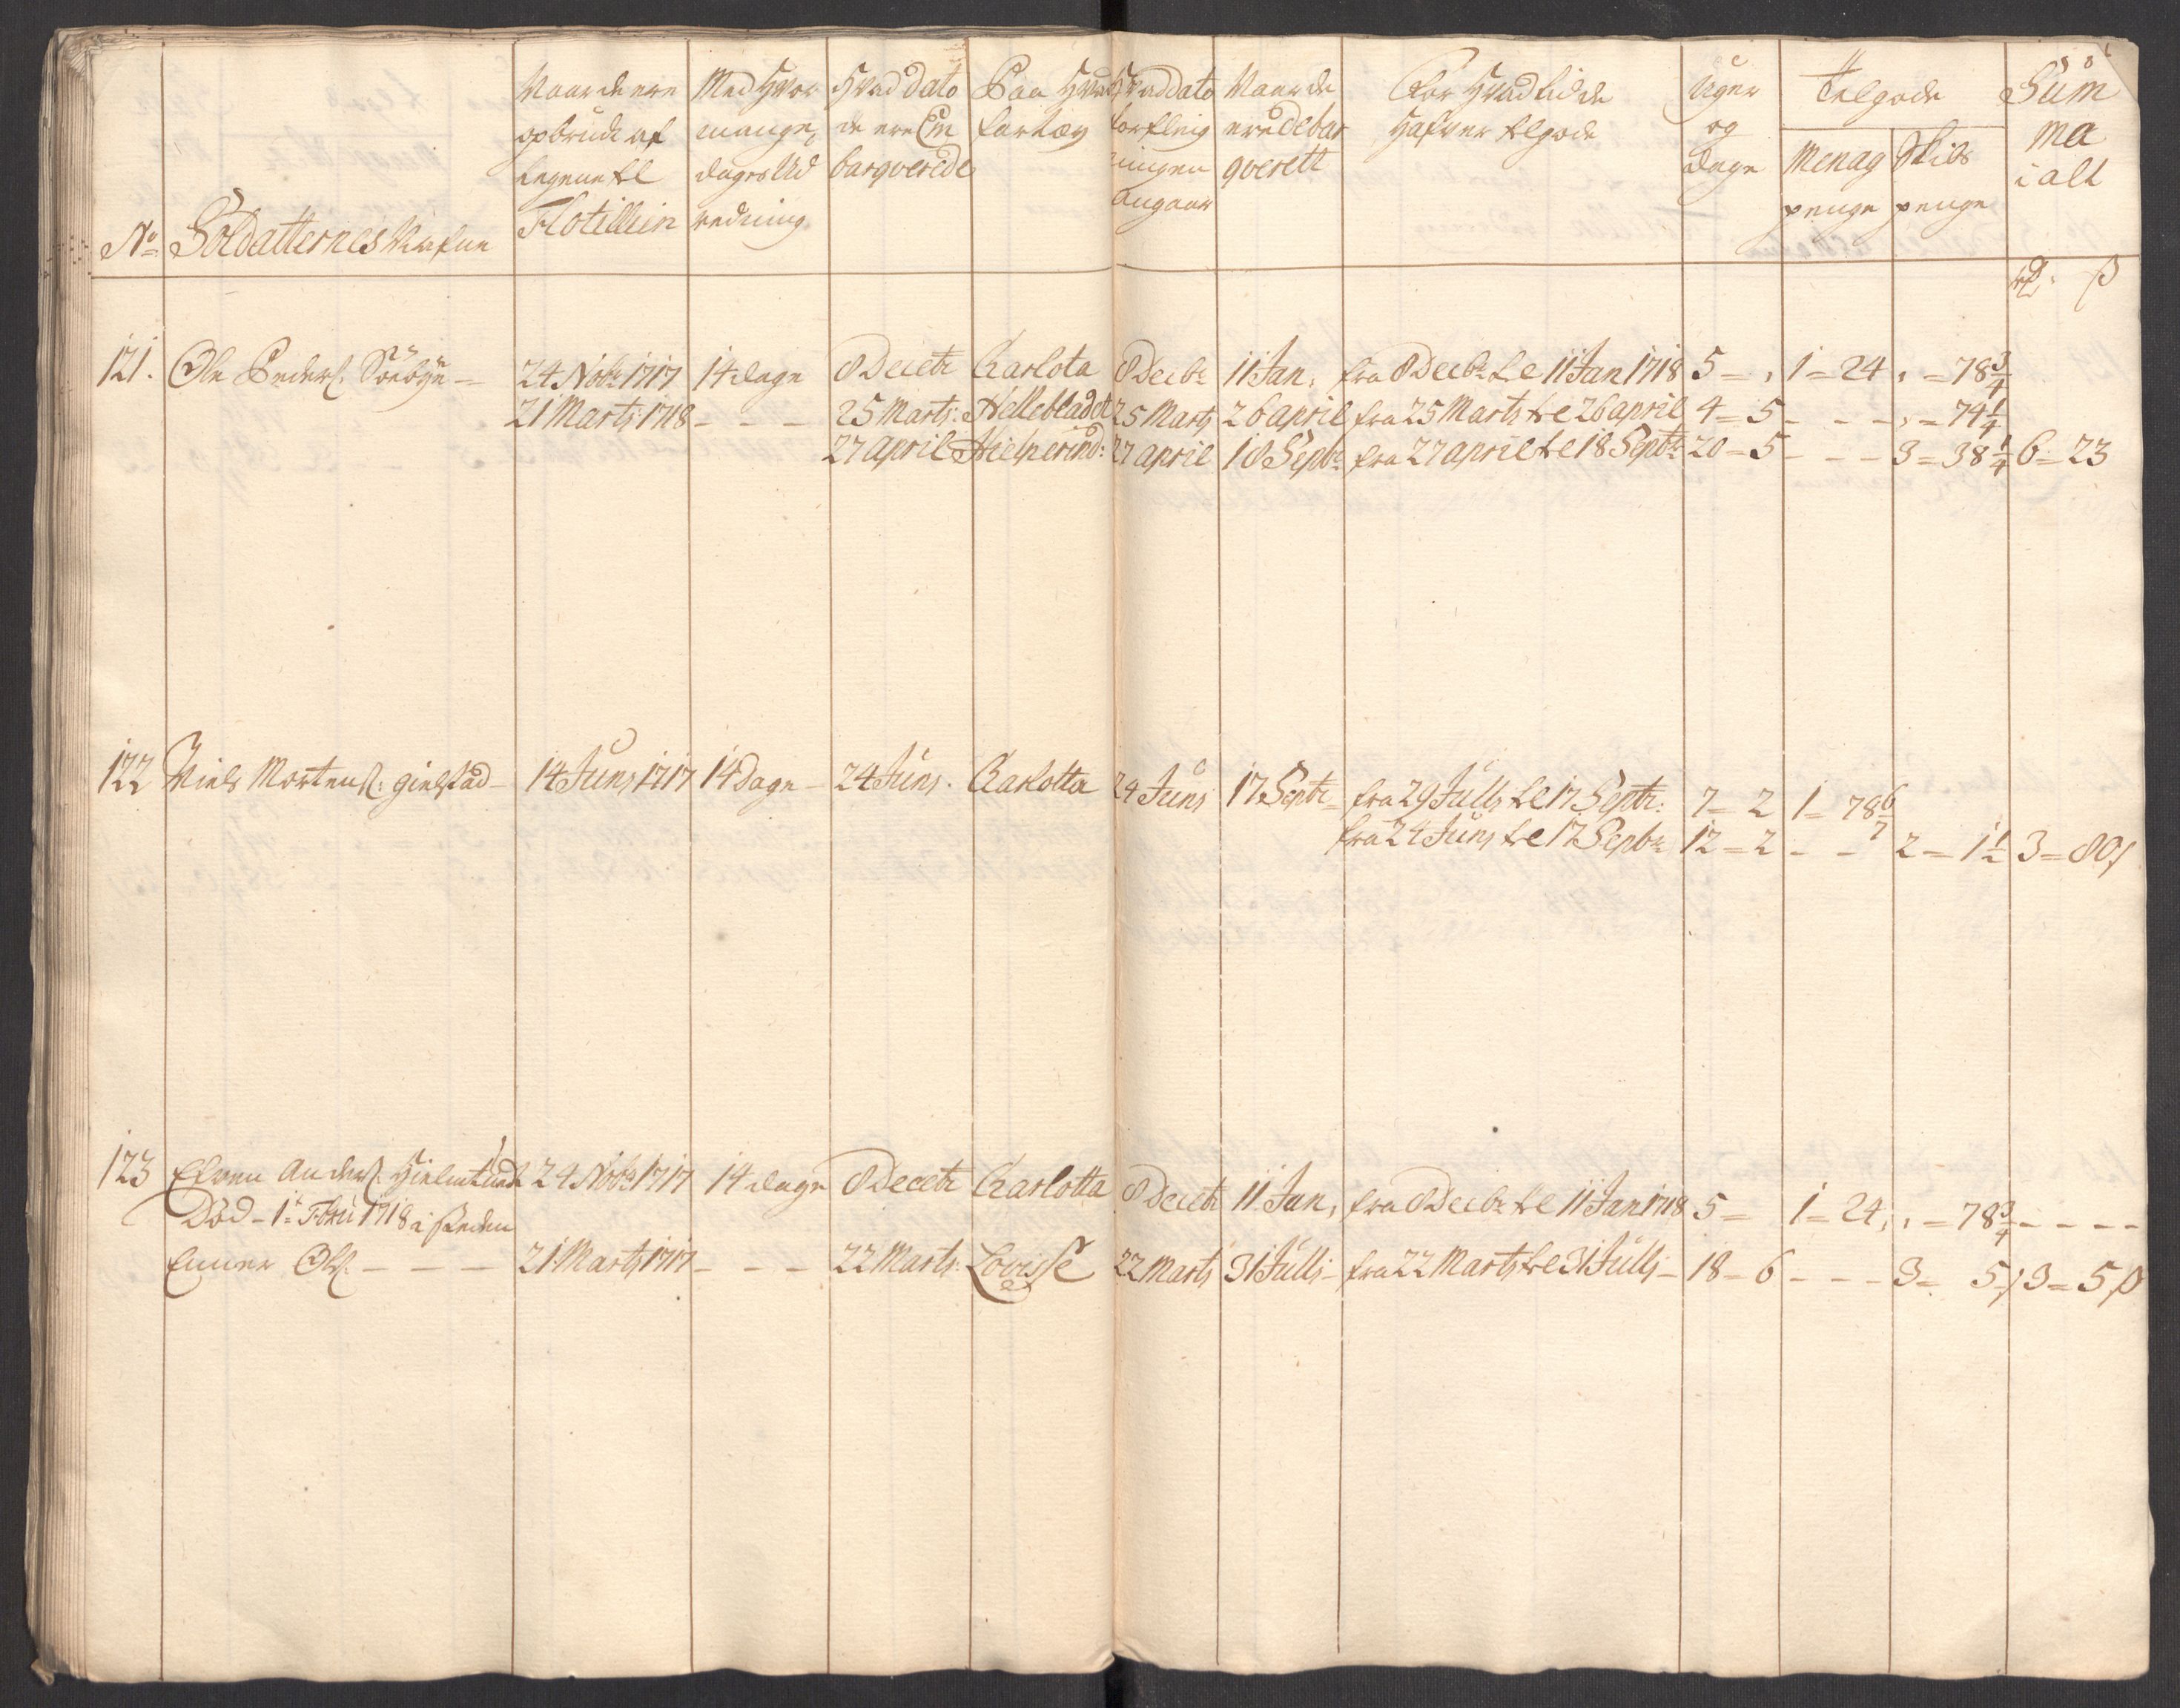 No Soldatternes Nafne
Naar de ere opbrudt af Legene til Flotillien
Med Hvor mange dages Udredning
Hvad dato de ere Embarqverede
Paa Hvad fartøy
Hvad dato forpleigningen angaar
Naar de ere debarqverett
For Hvad tid de Hafver tilgode
Uger og Dage
Tilgode
Menage penge
Skibs penge
Summa i alt
rd. ß
121. Ole Peders. Soebye 24 Nobr 1717 14 dage 8 Decebr Carlota 8 Decbr 11 Jan. fra 8 Decbr til 11 Jan 1718 5 = , 1 = 24 , = 78 3/4
21 Marts 1718 - - - 25 Marts: Hellebladet 25 Marts 26 april fra 25 Marts til 26 april 4 = 5 - - - , = 74 1/4
27 april Hielperind: 27 april 18 Sepbr fra 27 april til 18 Septr 20 = 5 - - - 3 = 38 1/4 6 = 23
122 Niels Mortens: gielstad - 14 Junj 1717 14 Dage - 24 Junj. Carlotta 24 Junj 17 Septr fra 29 Julij til 17 Septr: 7 = 2 1 = 78 6/7
fra 24 Junj til 17 Sepbr 12 = 2 - - 2 = 1 1/2 3 = 80 ß
123 Anders. 24 Nobr 1717 14 dage 8 Decebr Carlotta 8 Decebr 11 Jan, fra 8 Decbr til 11 Jan 1718 5 = 1 = 24, , = 78 3/4 - - - -
Död - 1t Febru 1718 i
Ols. - - - 21 Marts 1717 - - - 22 Marts: Lovisse 22 Marts 31 Julij - fra 22 Marts til 31 Julij - 18 = 6 - - - 3 = 5 ß 3 = 5 ß